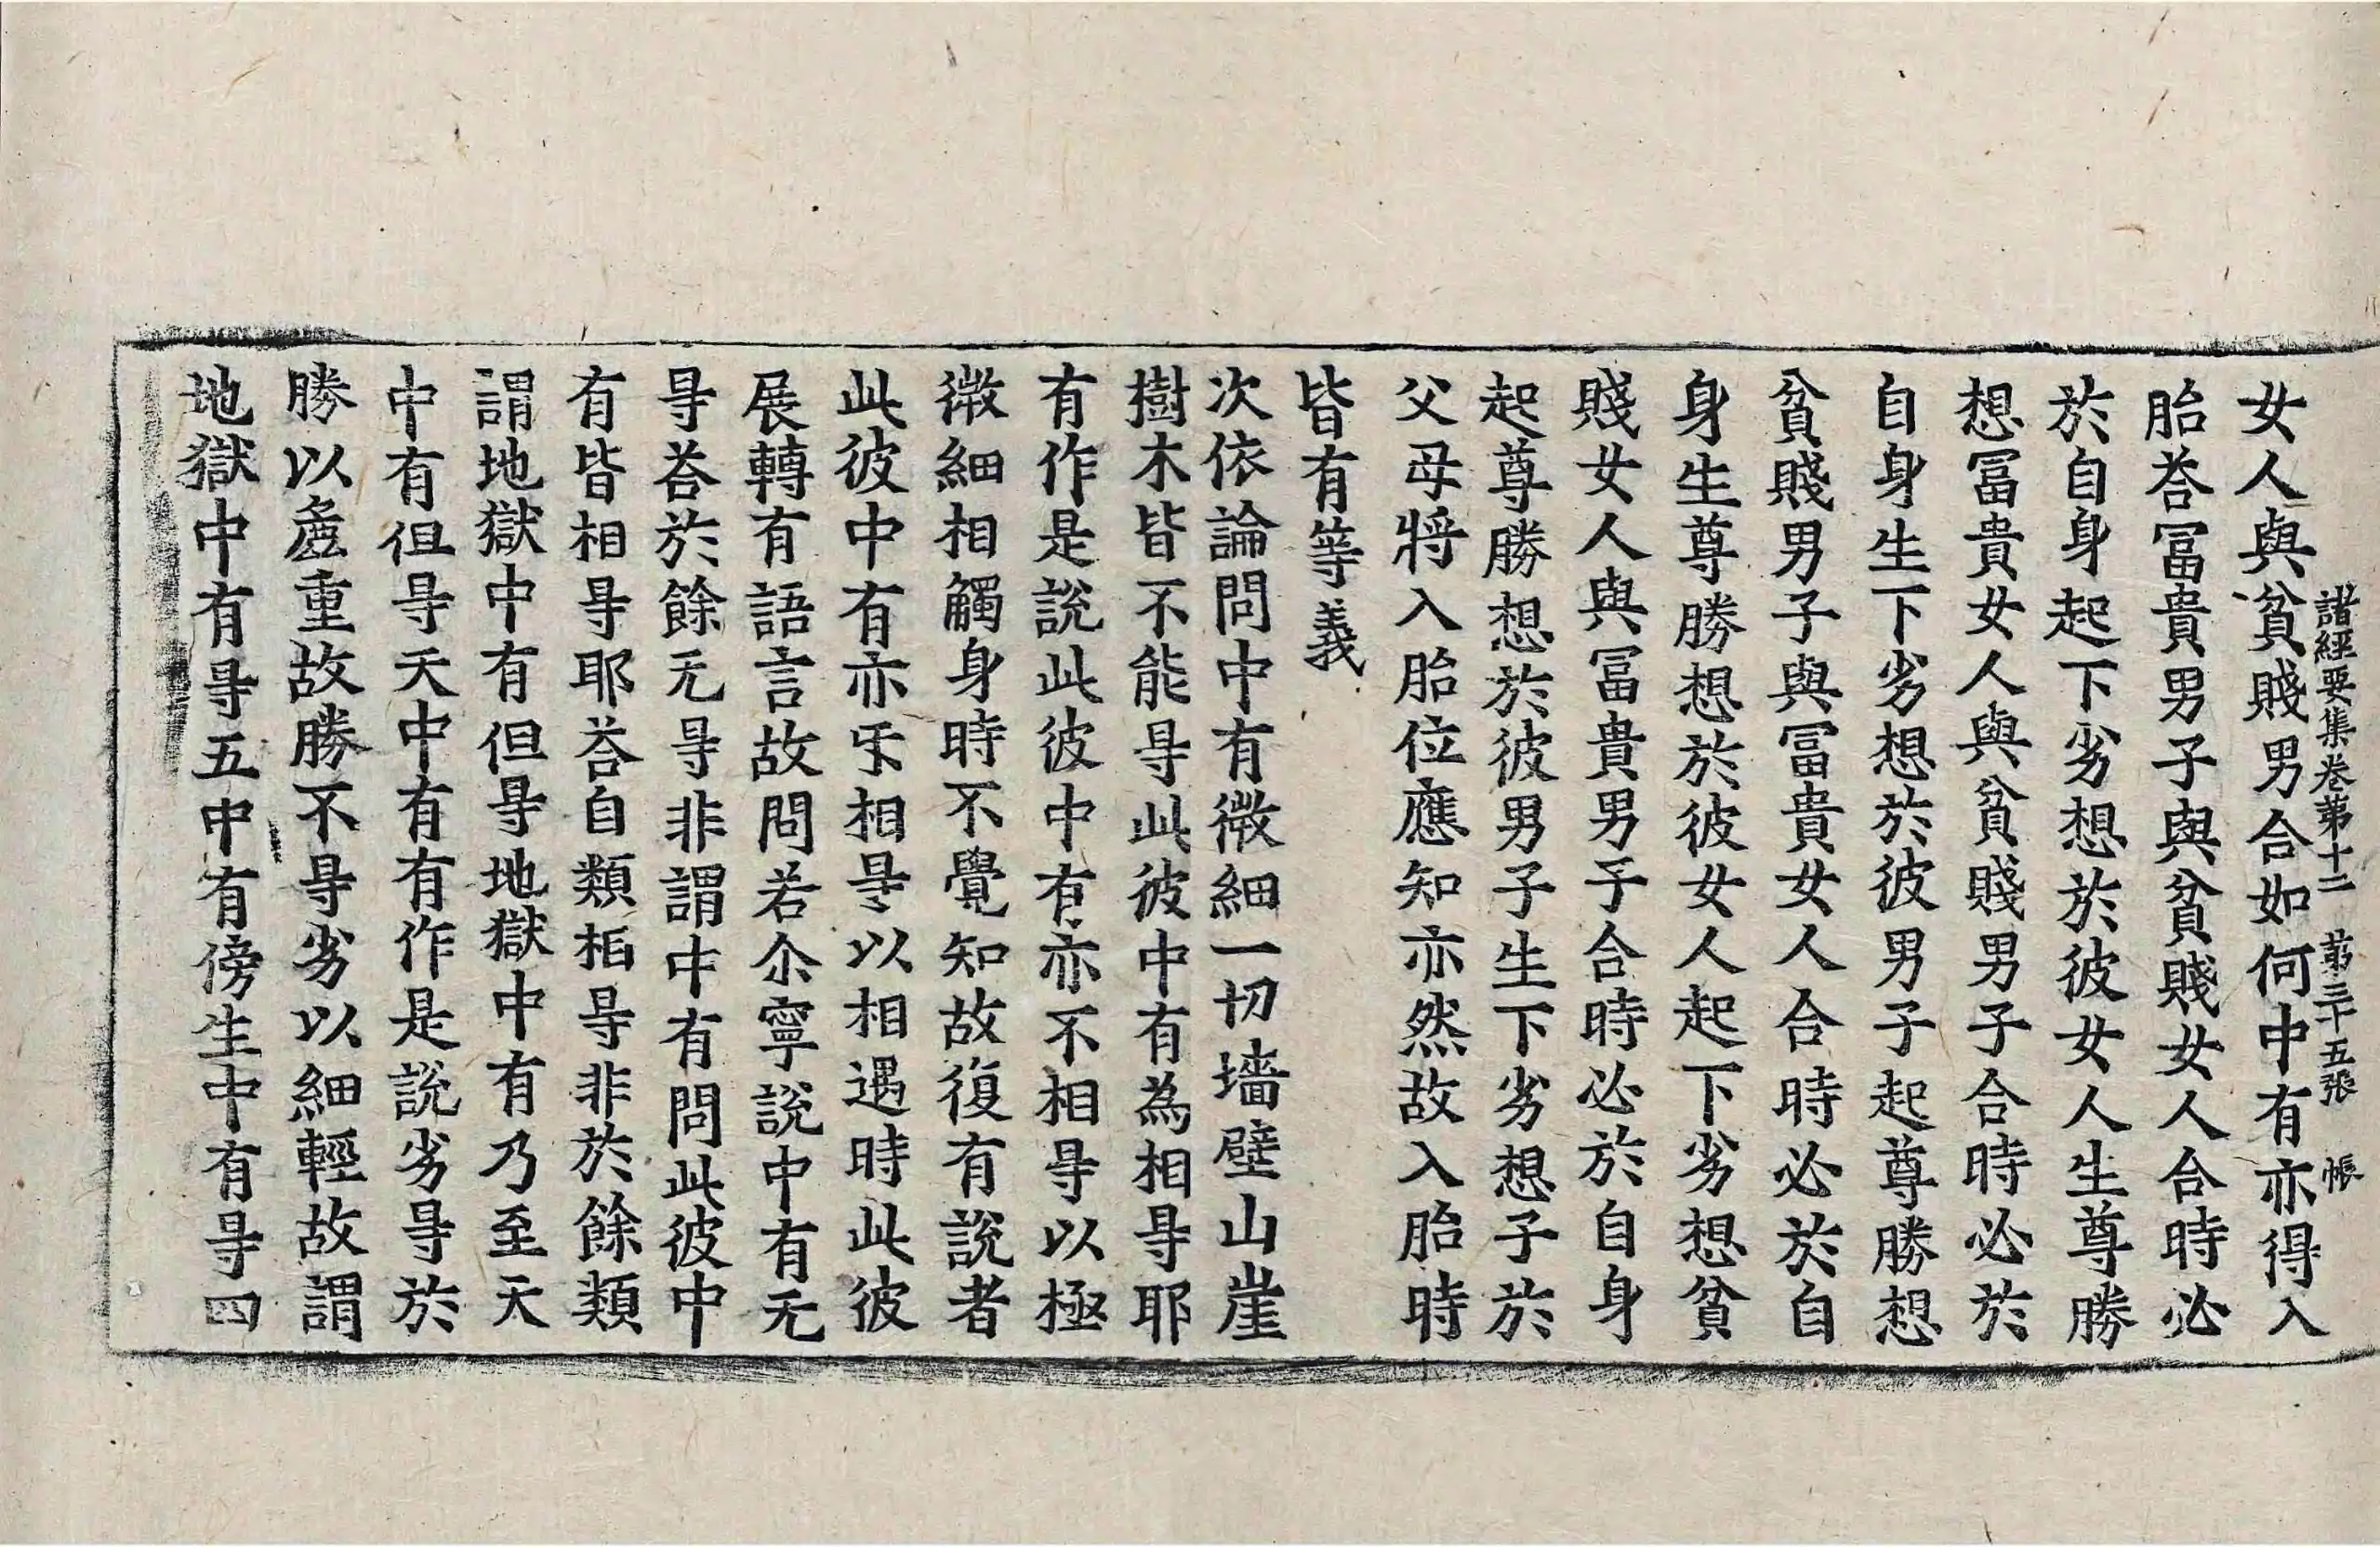 諸經要集卷第十二 第三十五張 帳
女人與貧賤男合如何中有亦得入
胎荅冨貴男子與貧賤女人合時必
於自身起下劣想於彼女人生尊勝
想冨貴女人與貧賤男子合時必於
自身生下劣想於彼男子起尊勝想
貧賤男子與冨貴女人合時必於自
身生尊勝想於彼女人起下劣想貧
賤女人與冨貴男子合時必於自身
起尊勝想於彼男子生下劣想子於
父母將入胎位應知亦然故入胎時
皆有等義
次依論問中有微細一切墻壁山崖
樹木皆不能㝵此彼中有為相㝵耶
有作是說此彼中有亦不相㝵以極
微細相觸身時不覺知故復有說者
此彼中有亦㸦相㝵以相遇時此彼
展轉有語言故問若尒寧說中有无
㝵荅於餘无㝵非謂中有問此彼中
有皆相㝵耶荅自類相㝵非於餘類
謂地獄中有但㝵地獄中有乃至天
中有但㝵天中有有作是說劣㝵於
勝以麁重故勝不㝵劣以細輕故謂
地獄中有㝵五中有傍生中有㝵四